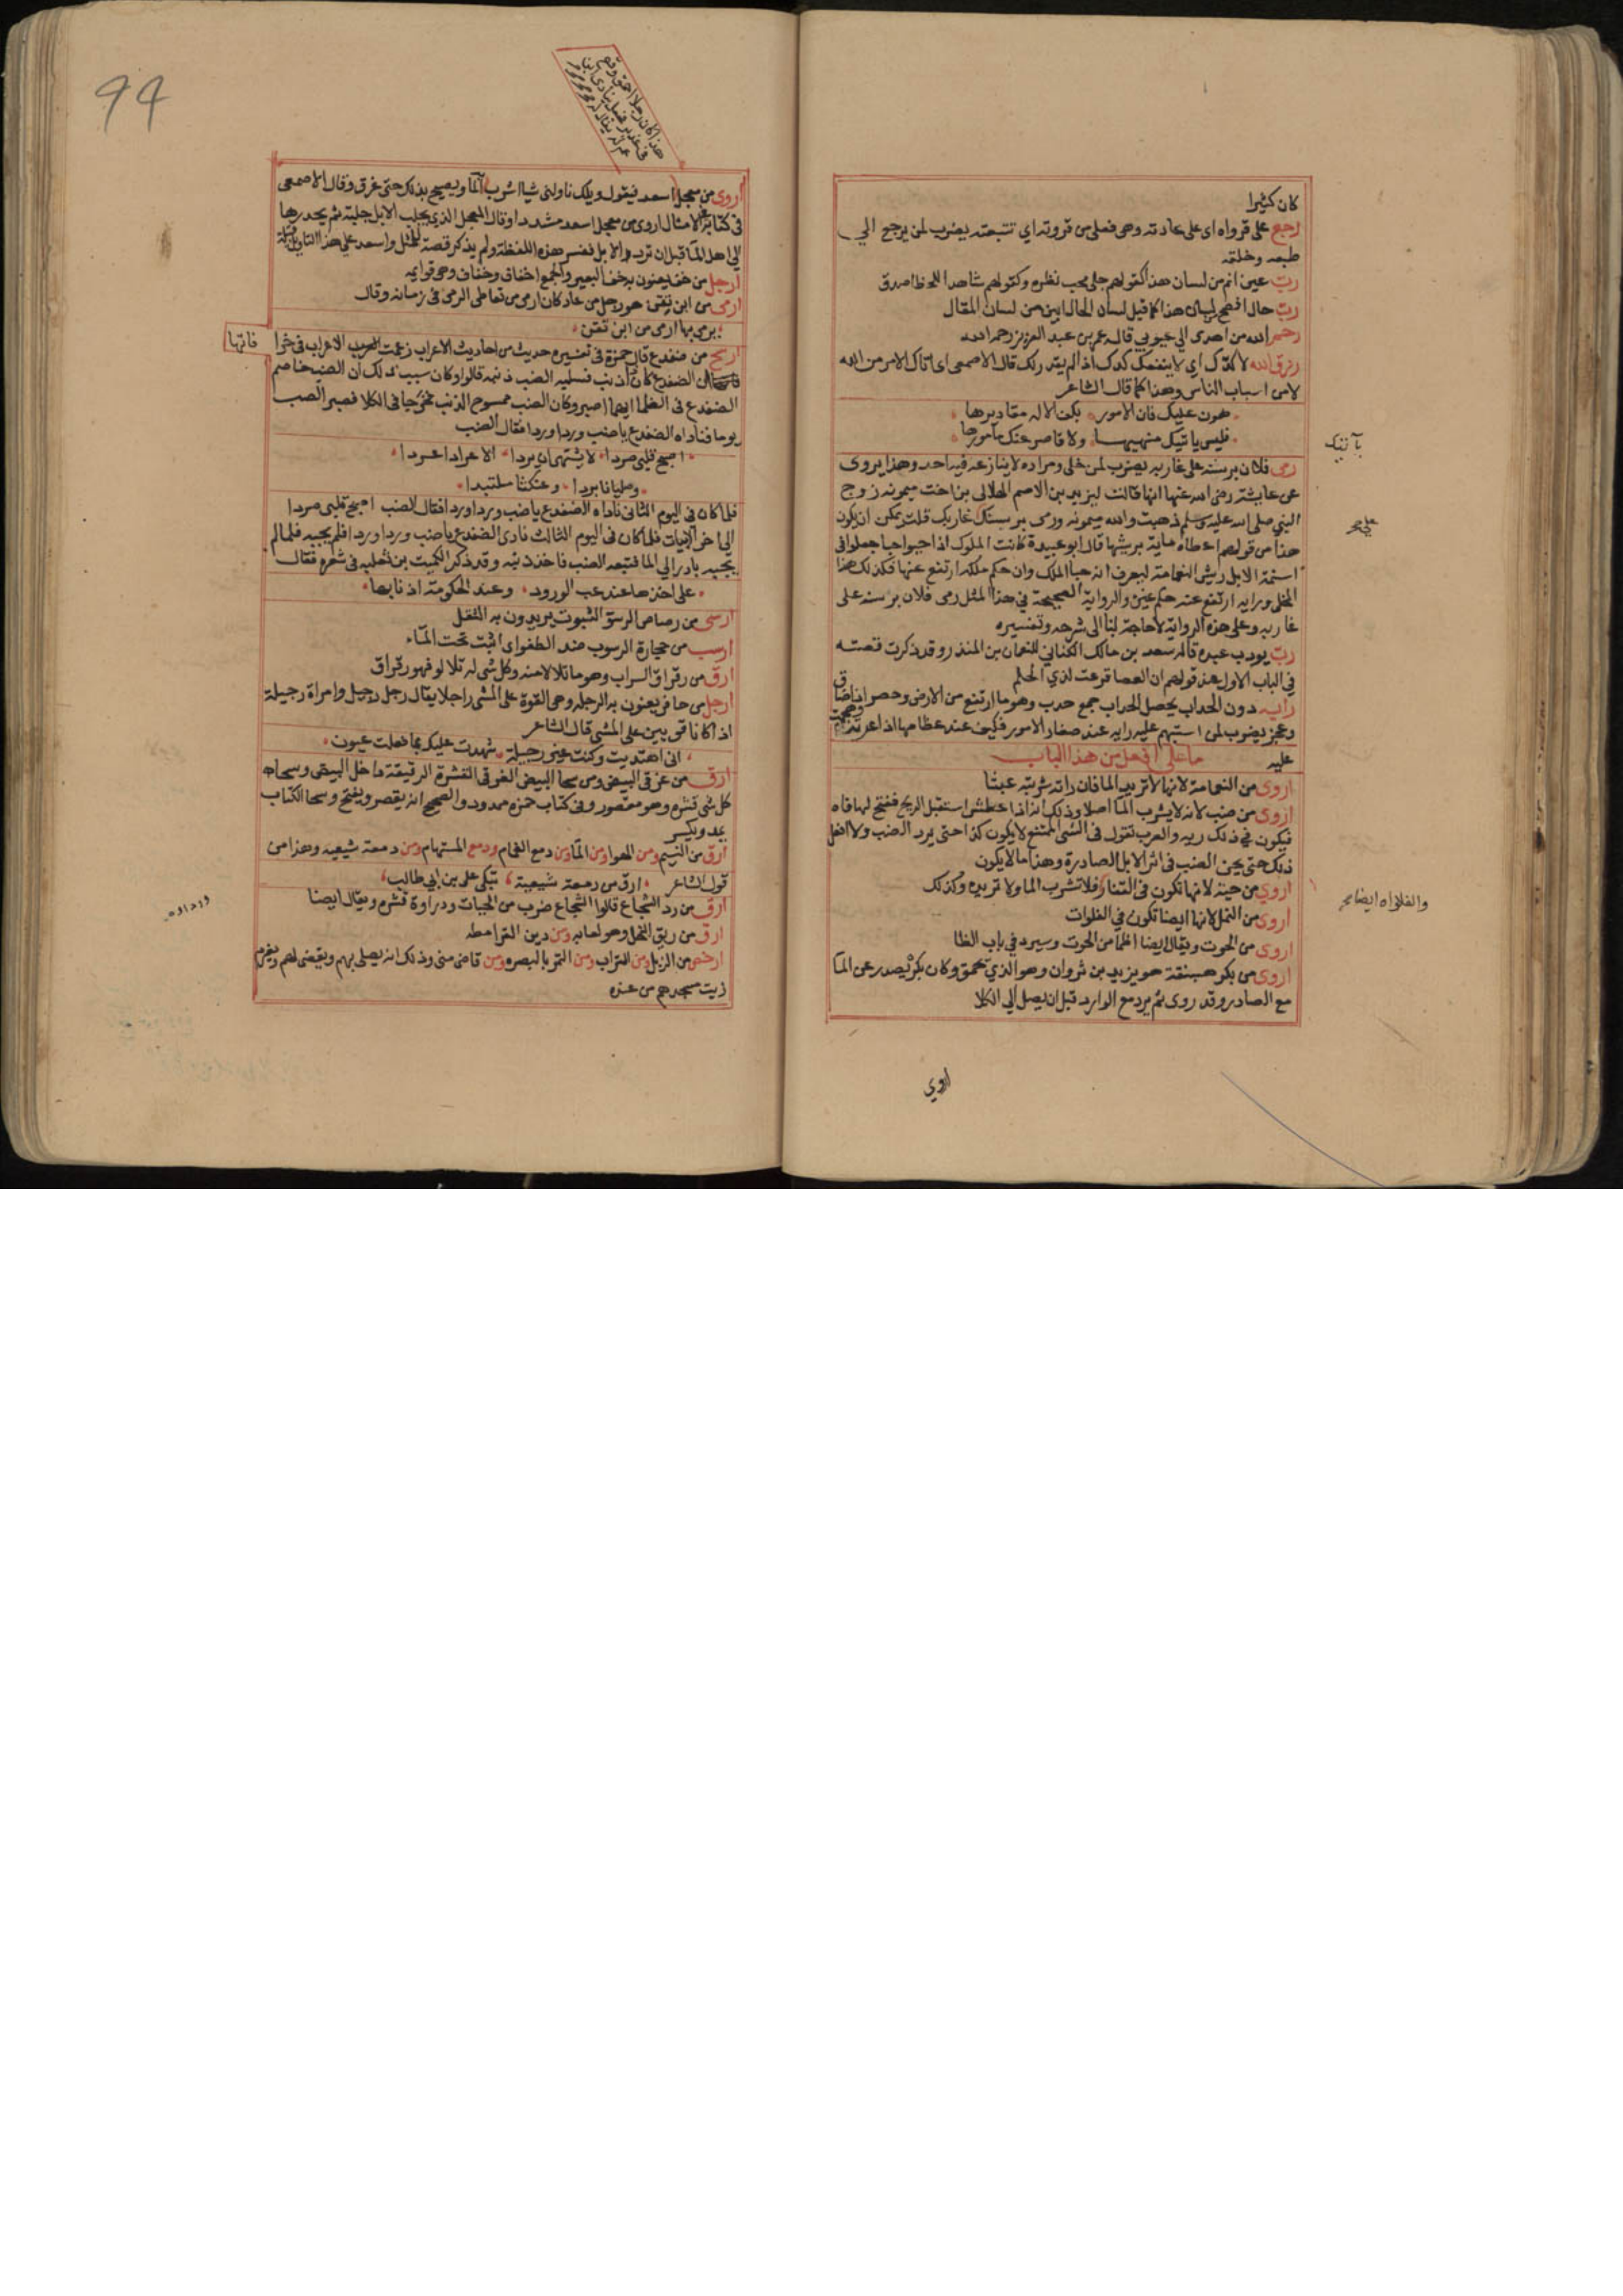 كان كثيرا
رجع على قرواه اى على عادته وهى فعلى من قروته اي تتبعته يضرب لمن يرجع الي
طبعه وخلقه
ربّ عين انم من لسان هذا كقولهم جلى محب نظره وكقولهم شاهد اللحظ اصدق
ربّ حال افصح من لسان هذا كما قيل لسان الحال ابين من لسان المقال
رحم الله من اهدى الي عيوبي قاله عمر بن عبد العزيز رحمه الله
رزق الله لا كدّك اي لا ينفعك كدك اذا لم يقدر لك قال الاصمعى اى اتاك الامر من الله
لا من اسباب الناس وهذا كما قال الشاعر
هون عليك فان الامور بكف الاله مقاديرها
فليس ياتيك منهيها ولا قاصر عنك مامورها
بآتيك
رمى فلان برسنه على غاربه يضرب لمن خلى ومراده لا ينازعه فيه احد وهذا يروى
عن عايشة رضى الله عنها انها قالت ليزيد بن الاصم الهلالى بن اخت ميمونه زوج
النبي صلى الله عليه وسلم ذهبت والله ميمونه ورمى برسنك على غاربك قلت يمكن ان يكون
هذا من قولهم اعطاه ماية بريشها قال ابو عبيدة كانت الملوك اذا حبوا حبا جعلوا فى
اسنمة الابل ريش النعامة ليعرف انه حبا الملك وان حكم ملكه ارتفع عنها فكذلك هذا
المخلى ورايه ارتفع عنه حكم غيره والرواية الصحيحة في هذا المثل رمى فلان برسنه على
غاربه وعلى هذه الرواية لا حاجة لنا الى شرحه وتفسيره
ربّ يودب عبده قاله سعد بن مالك الكناني للنعمان بن المنذر وقد ذكرت قصته
في الباب الاول عند قولهم ان العصا قرعت لذي الحلم
رايه دون الحداب يحصل الحداب جمع حدب وهو ما ارتفع من الارض وحصر اذا ضاق
وعجز يضرب لمن استبهم عليه رايه عند صغار الامور فكيف عند عظامها اذا عرته وهجمت
عليه ما على افعل من هذا الباب
اروى من النعامة لانها لا تريد الما فان راته شربته عبثا
اروى من ضب لانه لا يشرب الما اصلا وذلك انه اذا عطش استقبل الريح ففتح لها فاه
فيكون في ذلك ريه والعرب تقول فى الشى الممتنع لا يكون كذا حتى يرد الضب ولا افعل
ذلك حتى يحن الضب فى اثر الابل الصادرة وهذا ما لا يكون
اروي من حية لانها تكون فى القفار فلا تشرب الما ولا تريده وكذلك
اروى من النمل لانها ايضا تكون في الفلوات
اروى من الحوت ويقال ايضا اظما من الحوت وسيرد في باب الظا
اروى من بكر هبنقة هو يزيد بن ثروان وهو الذي يحمق وكان بكره يصدر عن الما
مع الصادر وقد روى ثم يرد مع الوارد قبل ان يصل الي الكلا
اروي
94
اروى من معجل اسعد فيقول ويلك ناولنى شيا اشرب به الما ويصيح بذلك حتى غرق وقال الاصمعى
فى كتابه فى الامثال اروى من معجل اسعد مشددا وقال المعجل الذي يجلب الابل جلبة ثم يحدرها
الي اهل الما قبل ان ترد الابل ففسر هذه اللفظة ولم يذكر قصة للمثل واسعد على هذا التاويل قبيلة
ارجل من خف يعنون به خف البعير والجمع اخفاف وخفاف وهى قوايمه
ارمى من ابن تقن هو رجل من عاد كان ارمى من تعاطى الرمى فى زمانه وقال
يرمى بها ارمى من ابن تقن
ارسح من ضفدع قال حمزة فى تفسيره حديث من احاديث الاعراب زعمت العرب الاعراب فى خرا
فاتها
ان الضفدع كان ذا ذنب فسلبه الضب ذنبه قالوا وكان سبب ذلك ان الضب خاصم
الضفدع فى الظما ايهما اصبر وكان الضب ممسوح الذنب فخرجا فى الكلا فصبر الضب
يوما فناداه الضفدع يا ضب وردا وردا فقال الضب
اصبح قلبى صردا لا يشتهى ان يردا الا عرادا عردا
وصليانا بردا وعنكثا ملتبدا
فلما كان في اليوم الثانى ناداه الضفدع يا ضب وردا وردا فقال الضب اصبح قلبى صردا
الى اخر الابيات فلما كان فى اليوم الثالث نادى الضفدع يا ضب وردا وردا فلم يجبه فلما لم
يجبه بادر الي الما فتبعه الضب فاخذ ذنبه وقد ذكر الكميت بن ثعلبه فى شعره فقال
على اخذها عند غب الورود وعند الحكومة اذنابها
ارسى من رصاص الرسو الثبوت يريدون به الثقل
ارسب من حجارة الرسوب ضد الطفو اى اثبت تحت المآء
ارق من رقراق السراب وهو ما تلالا منه وكل شى له تلالو فهو رقراق
ارجل من حافر يعنون به الرجله وهى القوة على المشى راجلا يقال رجل رجيل وامراة رجيلة
اذا كانا قويين على المشى قال الشاعر
انى اهتديت وكنت غير رجيلة شهدت عليك بما فعلت عيون
ارق من غرقى البيض ومن سحا البيض الغرقى القشرة الرقيقة داخل البيض وسحاه
كل شى قشره وهو مقصور وفى كتاب حمزه ممدود والصحيح انه يقصر ويفتح وسحا الكتاب
يمد ويكسر
ارق من النسيم ومن الهوا ومن الما ومن دمع الغمام ودمع المستهام ومن دمعة شيعيه وهذا من
قول الشاعر ارق من دمعة شيعية تبكى على بن ابي طالب
ارق من ردا الشجاع قالوا الشجاع ضرب من الحيات ورداوه قشره ويقال ايضا
ارق من ريق النحل وهو لعابه ومن دين القرامطه
ارخص من الزبل ومن التراب ومن التمر بالبصره ومن قاضى منى وذلك انه يصلى بهم ويقضى لهم ويغرم
زيت مسجدهم من عنده